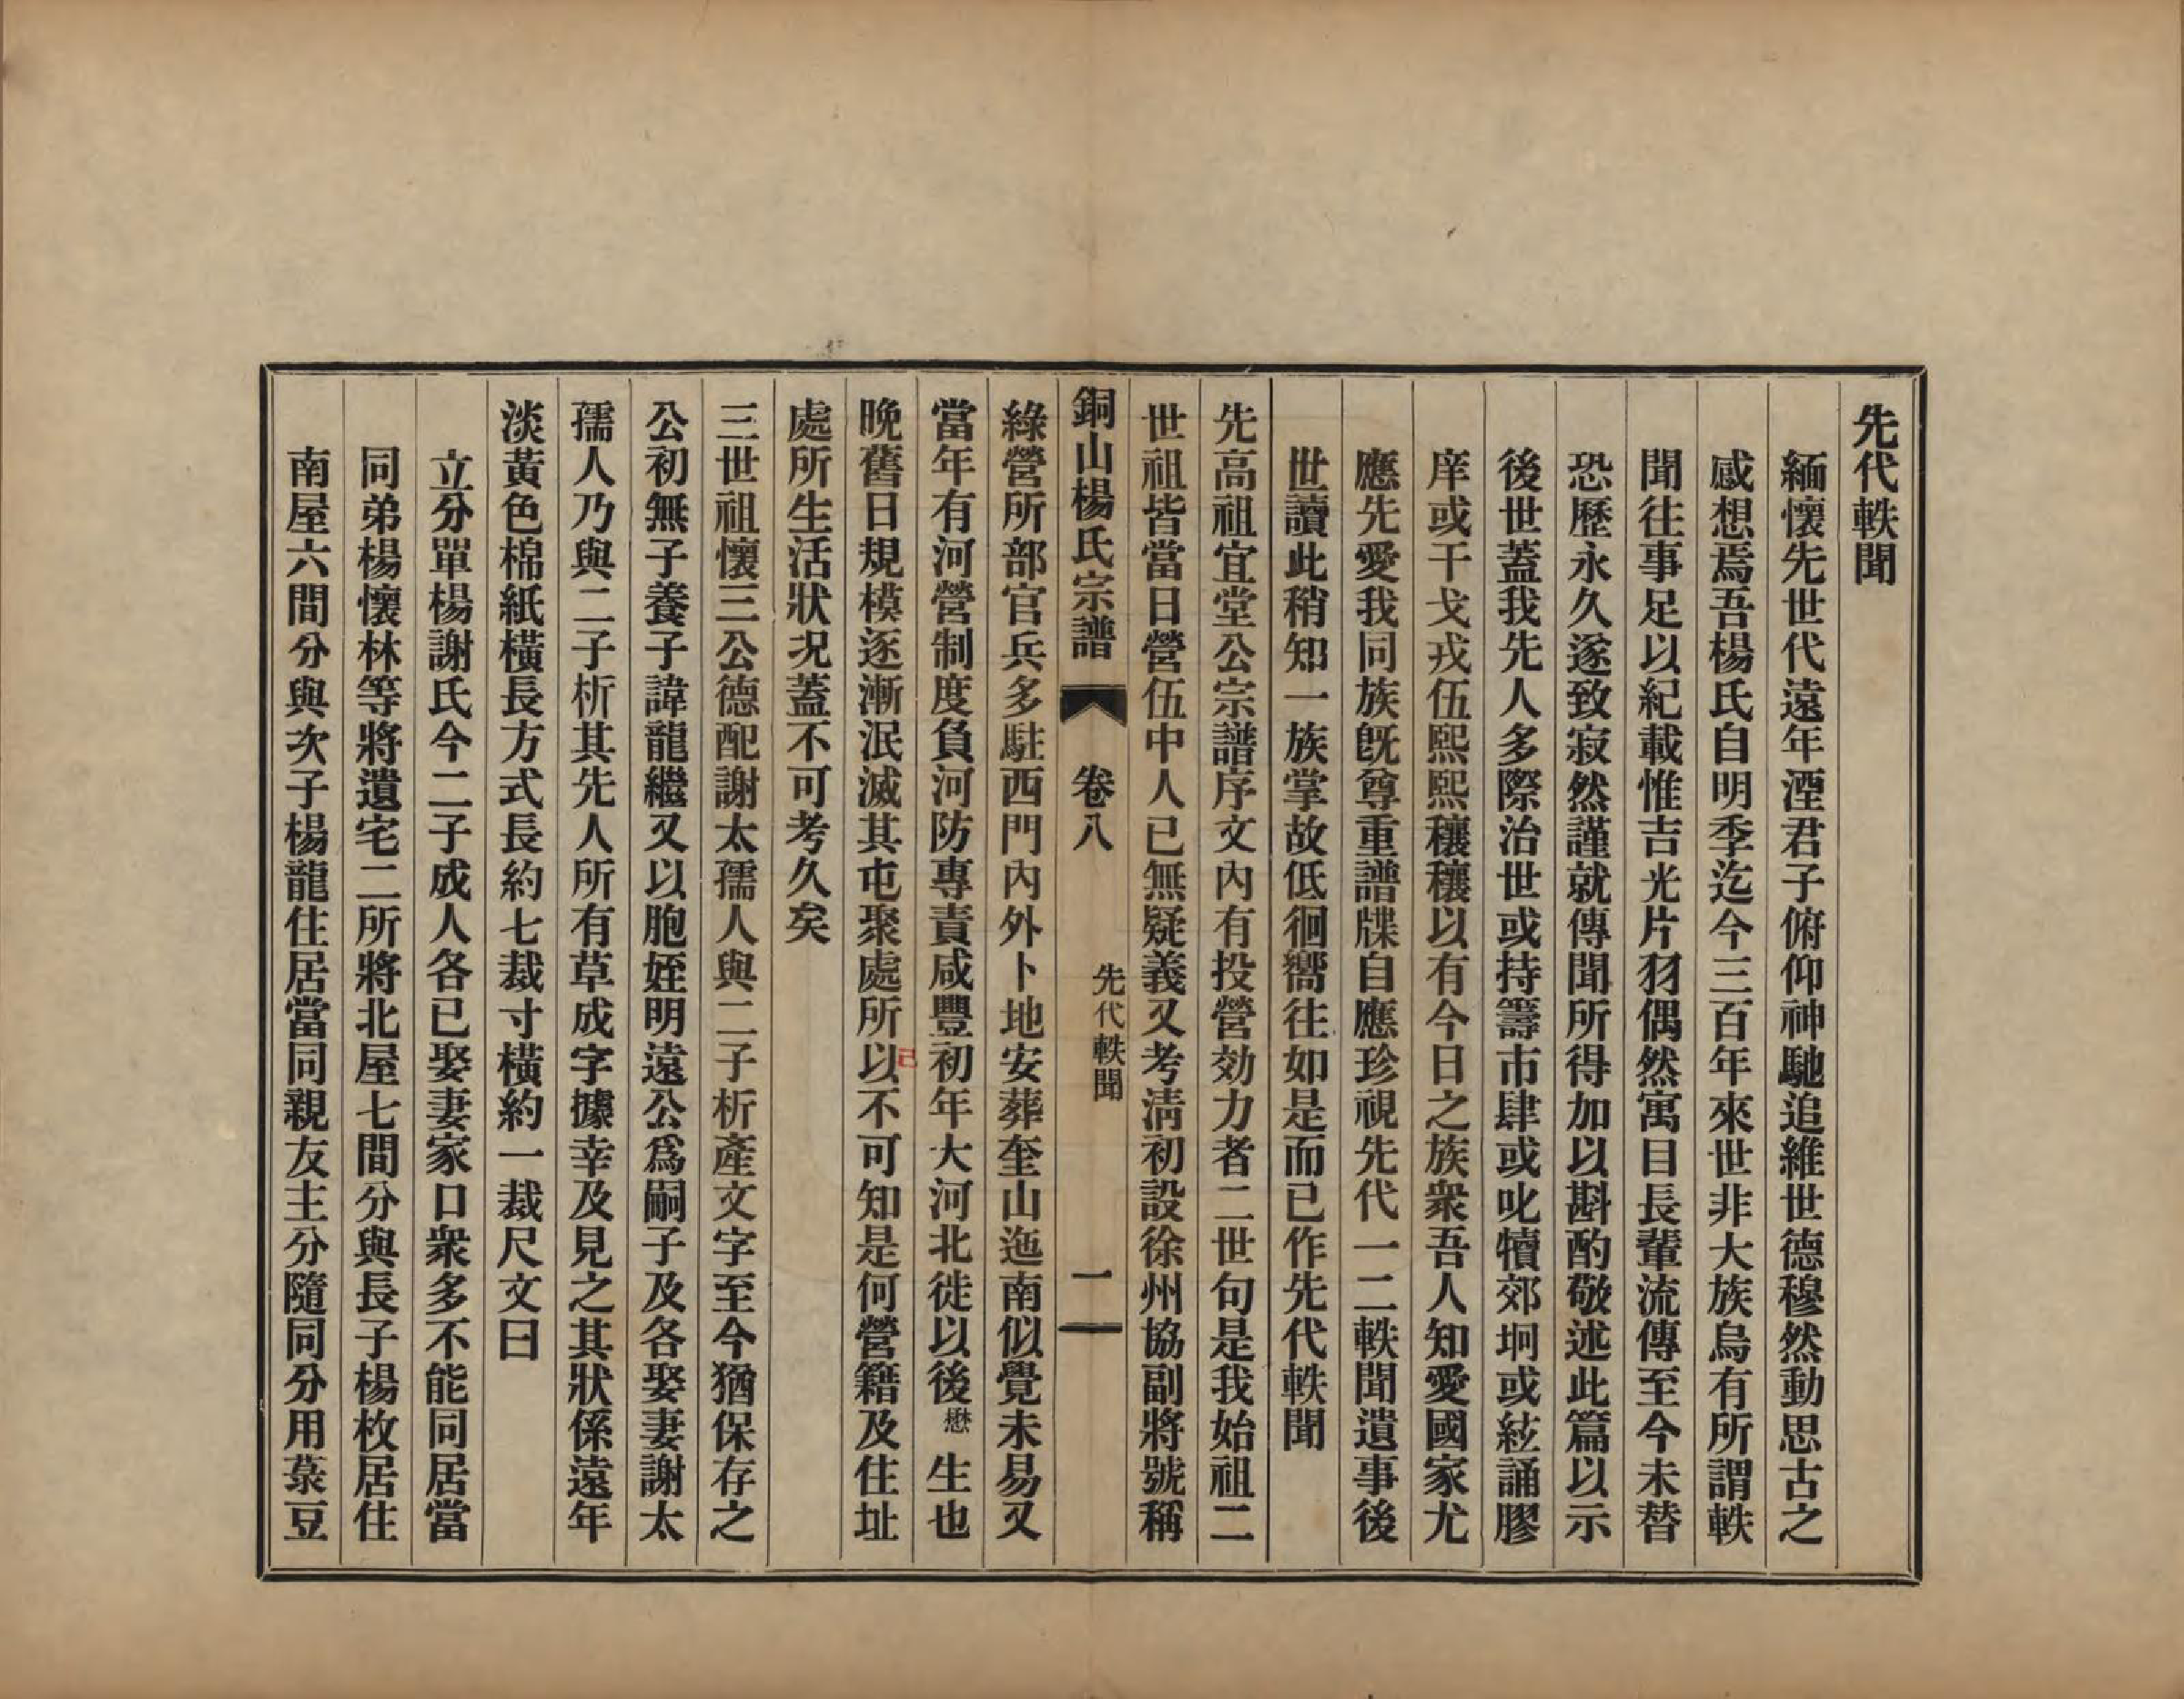 先代軼聞
緬懷先世代遠年湮君子俯仰神馳追維世德穆然動思古之
感想焉吾楊氏自明季迄今三百年來世非大族烏有所謂軼
聞往事足以紀載惟吉光片羽偶然寓目長輩流傳至今未替
恐歷永久遂致寂然謹就傳聞所得加以斟酌敬述此篇以示
後世蓋我先人多際治世或持籌市肆或叱犢郊坰或絃誦膠
庠或干戈戎伍熙熙穰穰以有今日之族衆吾人知愛國家尤
應先愛我同族旣尊重譜牒自應珍視先代一二軼聞遺事後
世讀此稍知一族掌故低徊嚮往如是而已作先代軼聞
先高祖宜堂公宗譜序文內有投營効力者二世句是我始祖二
世祖皆當日營伍中人已無疑義又考淸初設徐州協副將號稱
銅山楊氏宗譜 卷八 先代軼聞 一
綠營所部官兵多駐西門內外卜地安葬奎山迤南似覺未易又
當年有河營制度負河防專責咸豐初年大河北徙以後懋生也
晚舊日規模逐漸泯滅其屯聚處所以己不可知是何營籍及住址
處所生活狀況蓋不可考久矣
三世祖懷三公德配謝太孺人與二子析產文字至今猶保存之
公初無子養子諱龍繼又以胞姪明遠公爲嗣子及各娶妻謝太
孺人乃與二子析其先人所有草成字據幸及見之其狀係遠年
淡黃色棉紙橫長方式長約七裁寸橫約一裁尺文曰
立分單楊謝氏今二子成人各已娶妻家口衆多不能同居當
同弟楊懷林等將遺宅二所將北屋七間分與長子楊枚居住
南屋六間分與次子楊龍住居當同親友主分隨同分用菉豆